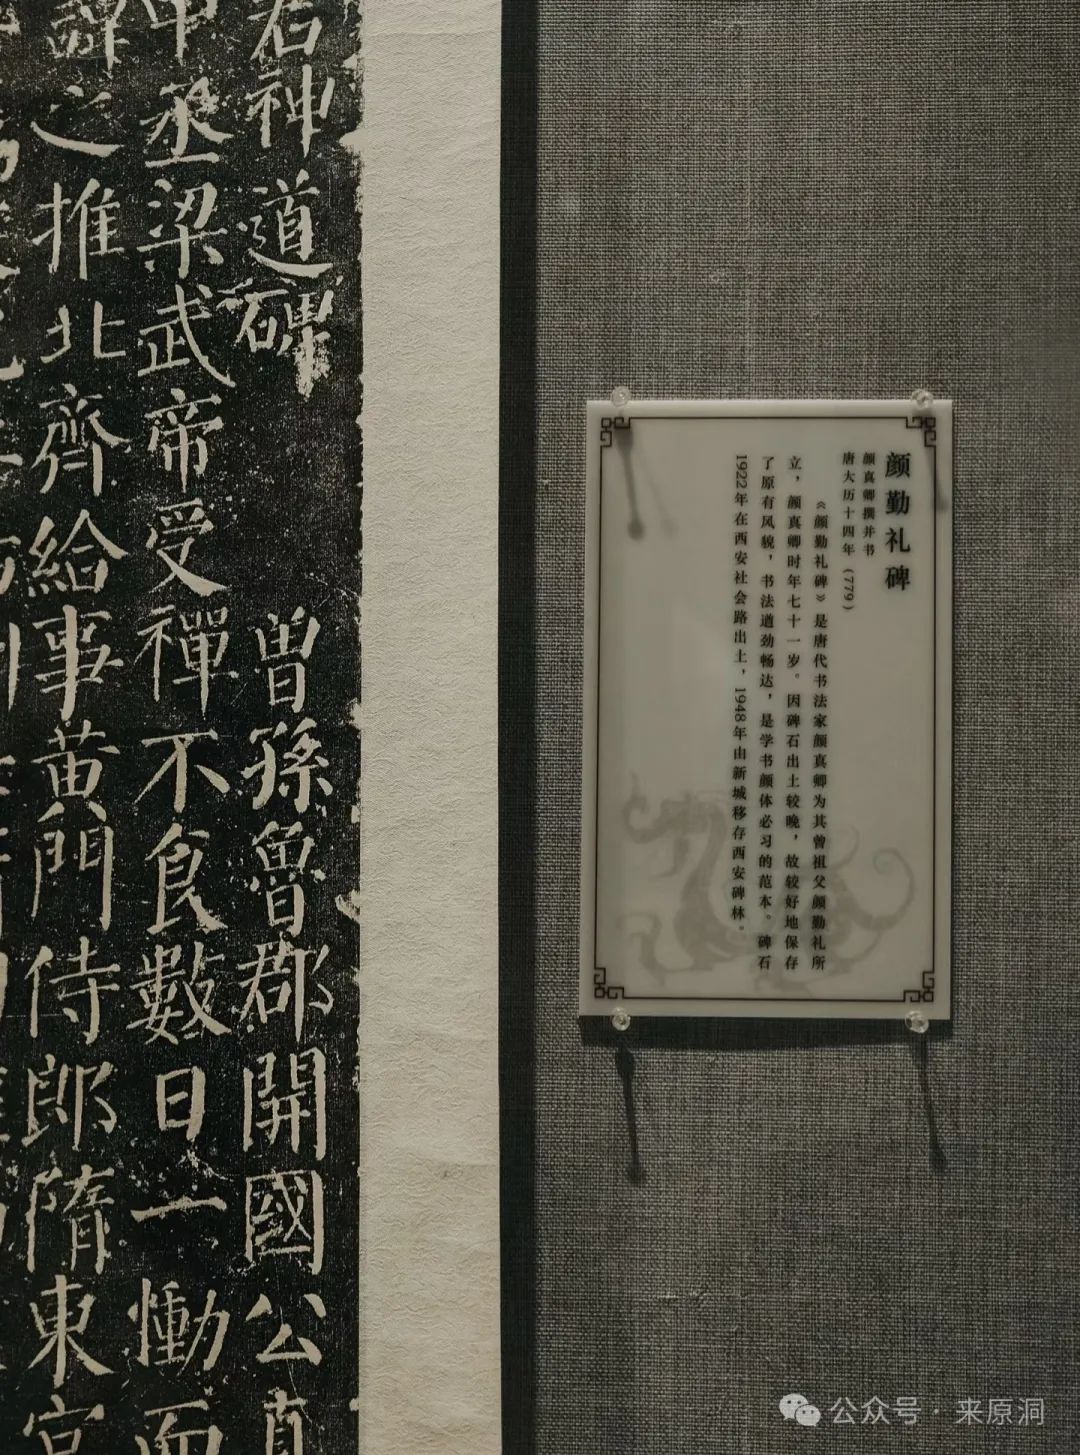 颜勤礼碑
颜真卿撰并书
唐大历十四年（779）
《颜勤礼碑》是唐代书法家颜真卿为其曾祖父颜勤礼所
立，颜真卿时年七十一岁。因碑石出土较晚，故较好地保存
了原有风貌，书法遒劲畅达，是学书颜体必习的范本。碑石
1922年在西安社会路出土，1948年由新城移存西安碑林。
君神道碑 曾孫魯郡開國公真
中丞梁武帝受禪不食數日一慟而
辭之推北齊給事黄門侍郎隋東宫
公众号·来原洞